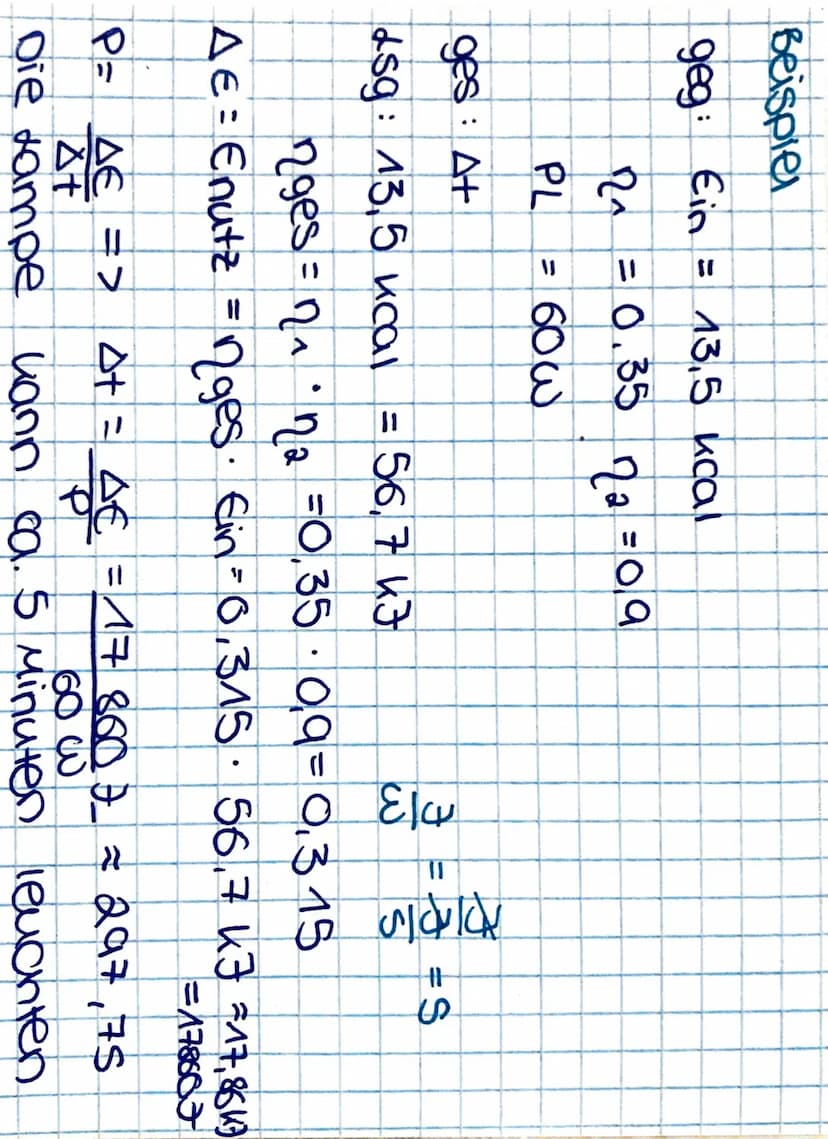 Beispiel
geg: Ein = 13,5 kcal
η1 = 0,35 η2 = 0,9
PL = 60W
ges: Δt
Lsg: 13,5 kcal = 56,7 kJ
J/W = J/(J/s) = s
ηges = η1 · η2 = 0,35 · 0,9 = 0,315
ΔE = Enutz = ηges · Ein = 0,315 · 56,7 kJ = 17,86 kJ
= 17860 J
P = ΔE/Δt => Δt = ΔE/P = 17 860 J/60 W ≈ 297,7s
Die Lampe kann ca. 5 Minuten leuchten